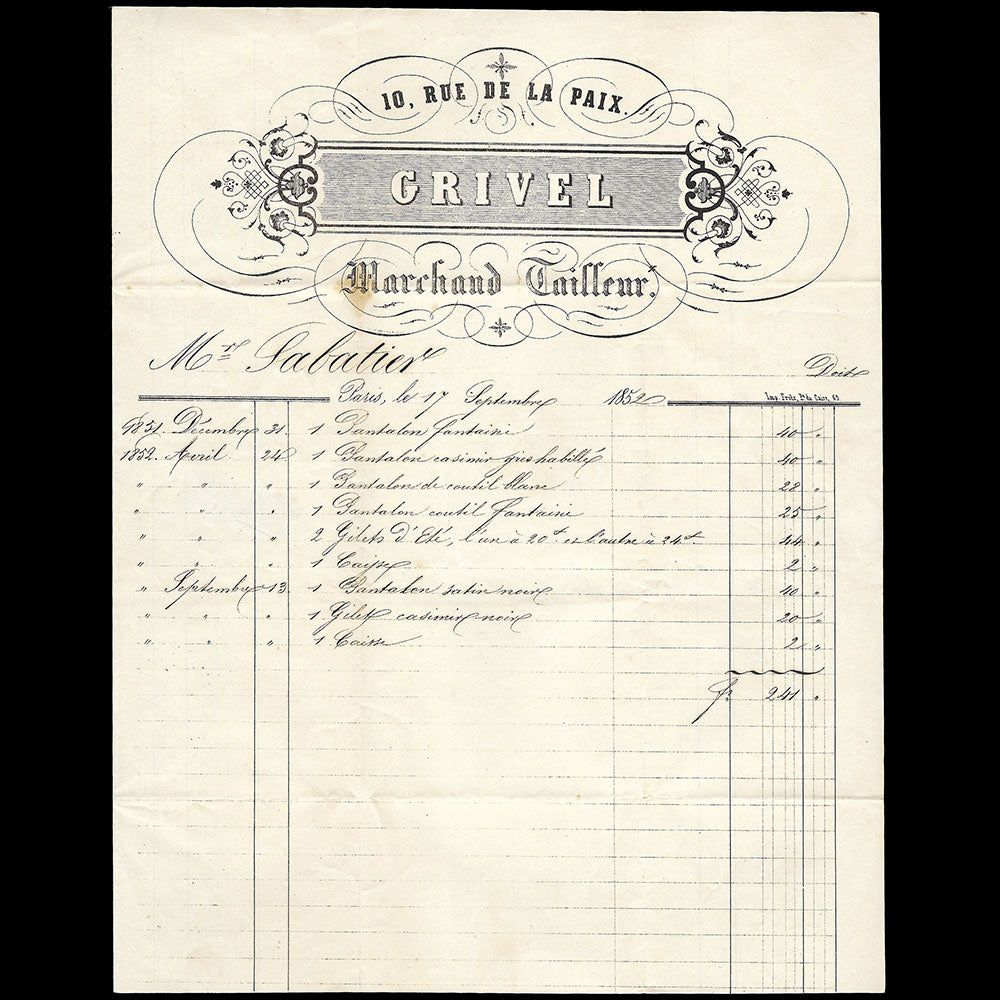 10, RUE DE LA PAIX.
GRIVEL
Marchand Tailleur.
Mr Sabatier
Doit
Paris, le 17 Septembre 1852
Imp. Frily, Pl. du Caire, 63
1851. Décembre 31. 1 Pantalon fantaisie 40 "
1852. Avril 24 1 Pantalon casimir gris habillé 40 "
" " " 1 Pantalon de coutil blanc 28 "
" " " 1 Pantalon coutil fantaisie 25 "
" " " 2 Gilets d'Eté, l'un à 20f et l'autre à 24f 44 "
" " " 1 Caisse 2 "
" Septembre 13. 1 Pantalon satin noir 40 "
" " " 1 Gilet casimir noir 20 "
" " " 1 Caisse 2 "
fr 241 "